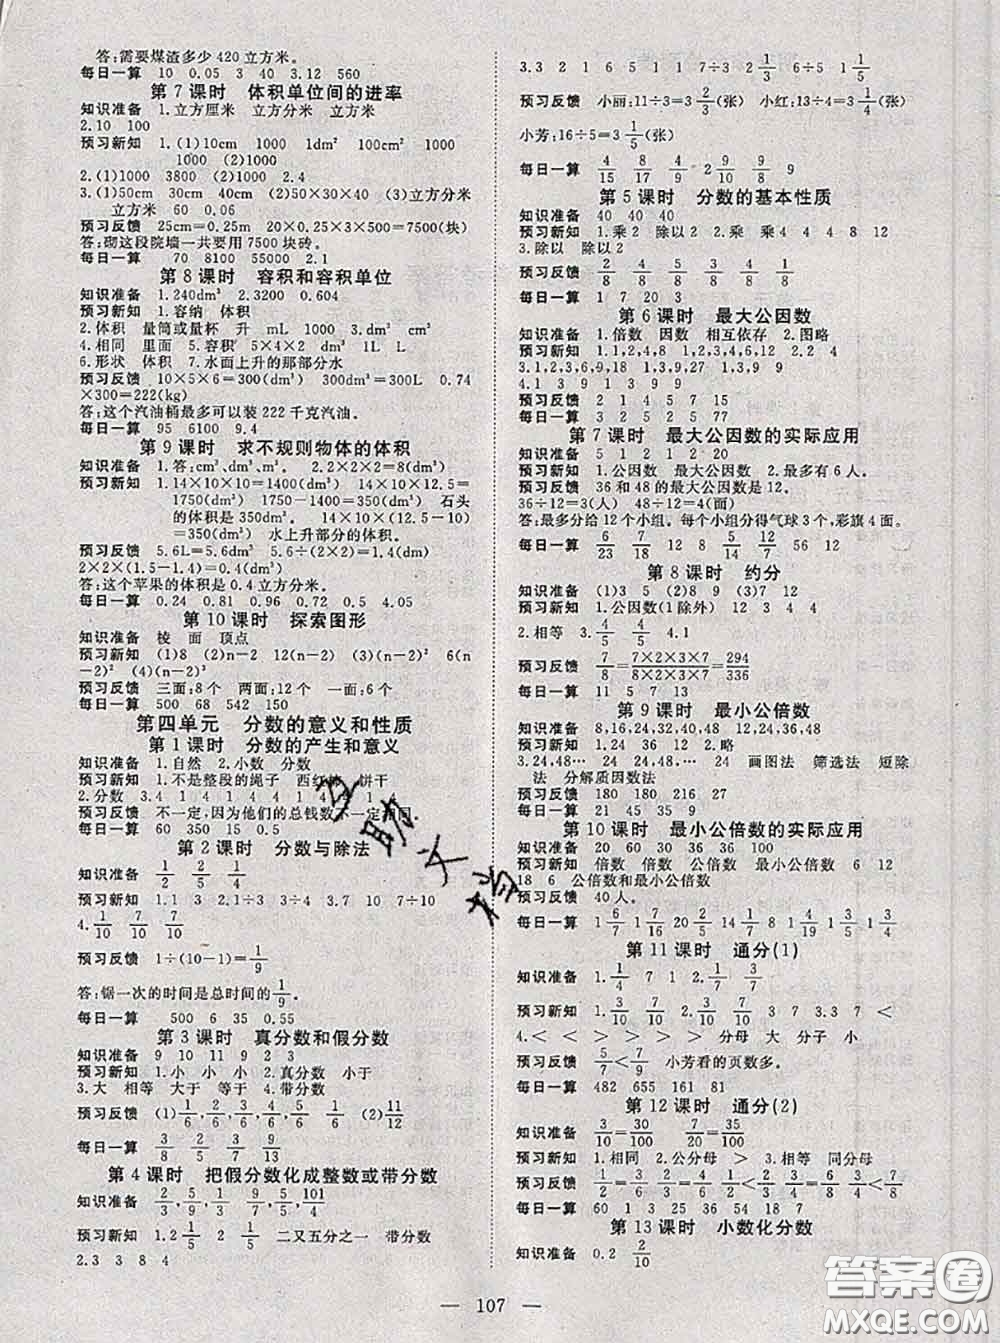 答:需要煤渣多少420立方米。
每日一算 10 0.05 3 40 3.12 560
第7课时 体积单位间的进率
知识准备 1.立方厘米 立方分米 立方米
2.10 100
预习新知 1.(1)10cm 1000 1dm³ 100cm³ 1000
1000 (2)1000
2.(1)1000 3800 (2)1000 2.4
3.(1)50cm 30cm 40cm (2)50×30×40 (3)立方分米
立方米 60 0.06
预习反馈 25cm=0.25m 20×0.25×3×500=7500(块)
答:砌这段院墙一共要用7500块砖。
每日一算 70 8100 55000 2.1
第8课时 容积和容积单位
知识准备 1.240dm³ 2.3200 0.604
预习新知 1.容纳 体积
2.体积 量筒或量杯 升 mL 1000 3.dm³ cm³
4.相同 里面 5.容积 5×4×2 1L L
6.形状 体积 7.水面上升的那部分水
预习反馈 10×5×6=300(dm³) 300dm³=300L 0.74
×300=222(kg)
答:这个汽油桶最多可以装222千克汽油。
每日一算 95 6100 9.4
第9课时 求不规则物体的体积
知识准备 1.答:cm³、dm³、m³。 2.2×2×2=8(dm³)
预习新知 1.14×10×10=1400(dm³) 14×10×12.5=
1750(dm³) 1750-1400=350(dm³) 石头
的体积是350dm³。 14×10×(12.5-10)
=350(dm³) 水上升部分的体积。
预习反馈 5.6L=5.6dm³ 5.6÷(2×2)=1.4(dm)
2×2×(1.5-1.4)=0.4(dm³)
答:这个苹果的体积是0.4立方分米。
每日一算 0.24 0.81 0.96 4.8 0.45 2.4
第10课时 探索图形
知识准备 棱 面 顶点
预习新知 (1)8 (2)n-2 12(n-2) (3)(n-2)² 6(n
-2)² (4)(n-2)³
预习反馈 三面:8个 两面:12个 一面:6个
每日一算 500 68 542 150
第四单元 分数的意义和性质
第1课时 分数的产生和意义
知识准备 1.自然 2.小数 分数
预习新知 1.不是整段的绳子 西红柿 饼干
2.分数 3.4 1 4 1 4 1 4 1 4 1 4
预习反馈 不一定,因为他们的总钱数不一定相同。
每日一算 60 350 15 0.5
第2课时 分数与除法
知识准备 1/2 2/5 1/4
预习新知 1.1 3 2.1÷3 1÷3 3.7 10 7÷10
4.1/10 7/10
预习反馈 1÷(10-1)=1/9
答:锯一次的时间是总时间的1/9。
每日一算 500 6 35 0.55
第3课时 真分数和假分数
知识准备 9 10 11 9 2 3
预习新知 1.小 小 小 2.真分数 小于
3.大 相等 大于 等于 4.带分数
预习反馈 (1)1/6,2/6,3/6,4/6,5/6 (2)11/12
每日一算 3/8 2/5 8/9 9/13
第4课时 把假分数化成整数或带分数
知识准备 2/3,3/4,1/9,9/7,5/5,101/4
预习新知 1.2 1/5 2 1/5 二又五分之一 带分数
2.3 3 8 4
3.3 2 1 6 5 1 1 7÷3 2 1/3 6÷5 1 1/5
预习反馈 小丽:11÷3=3 2/3(张) 小红:13÷4=3 1/4(张)
小芳:16÷5=3 1/5(张)
每日一算 4/15 8/17 4/9 4 2 9/10 9/8 9
第5课时 分数的基本性质
知识准备 40 40 40
预习新知 1.乘2 除以2 2.乘 乘4 4 除以2 2
3.除以 除以
预习反馈 2/8 4/8 5/8 6/8 7/8
每日一算 1 7 20 3
第6课时 最大公因数
知识准备 1.倍数 因数 相互依存 2.图略
预习新知 1.1,2,4,8 1,2,3,6 1,2 2.2 4
3.1,9 1,3,9 1,3,9
4.1 3 9 1 3 9 9
预习反馈 2 1 4 5 7 15
每日一算 3 2 5 2 5 77
第7课时 最大公因数的实际应用
知识准备 5 1 2 1 2 20
预习新知 1.公因数 最大公因数 2.最多有6人。
预习反馈 36和48的最大公因数是12。
36÷12=3(人) 48÷12=4(面)
答:最多分给12个小组。每个小组分得气球3个,彩旗4面。
每日一算 6/23 7/18 12 8 5/14 7/12 56 12
第8课时 约分
知识准备 (1)3 5 (2)8 9 (3)7
预习新知 1.公因数(1除外) 12 3 4 4
2.相等 3.4/5 4/5 4.1
预习反馈 7/8=7×2×3×7/8×2×3×7=294/336
每日一算 11 5 7 13
第9课时 最小公倍数
知识准备 8,16,24,32,40,48 12,24,36,48
预习新知 1.24 36 12 2.略
3.24,48… 24,48… 24 画图法 筛选法 短除
法 分解质因数法
预习反馈 180 180 216 27
每日一算 21 45 35 9
第10课时 最小公倍数的实际应用
知识准备 20 60 30 36 36 100
预习新知 倍数 倍数 公倍数 最小公倍数 6 12
18 6 公倍数和最小公倍数
预习反馈 40人。
每日一算 1 1/6 1/7 1 4/20 5/9 1/14 8 1 1/4 1 3/4 3/4
第11课时 通分(1)
知识准备 1.1/4 7 1 2.3/4 2/3
预习新知 1.3/10 7/10 2.3/10 7/10 3.3 7 <
4.< < > > > > 分母 大 分子 小
预习反馈 5/7<7/9 小芳看的页数多。
每日一算 482 655 161 81
第12课时 通分(2)
知识准备 3/10=30/100 7/20=35/100
预习新知 1.相同 2.公分母 > > 3.相等 同分母
预习反馈 1/2=2/4=3/6=4/8 2/3=4/6 3/4=6/8 7/8
每日一算 60 1 3 25 36 54 15
第13课时 小数化分数
知识准备 0.2 2/10
107
答案圈
MXQE.COM